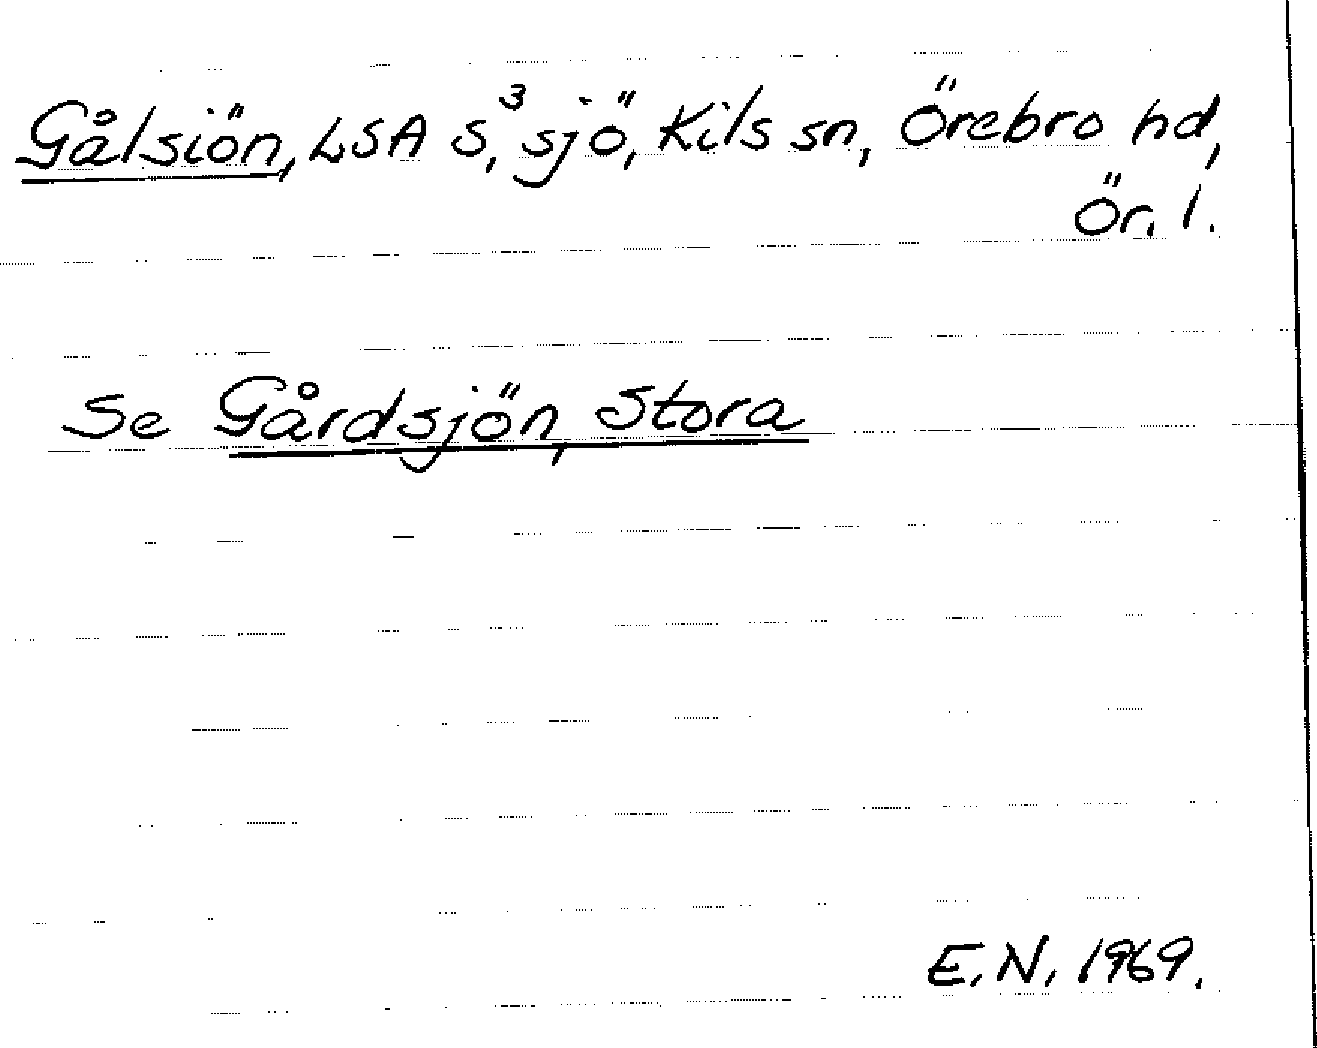 Gålsiön, LSA S,³ sjö, Kils sn, Örebro hd,
Ör. l.
Se Gårdsjön, Stora
E. N. 1969.